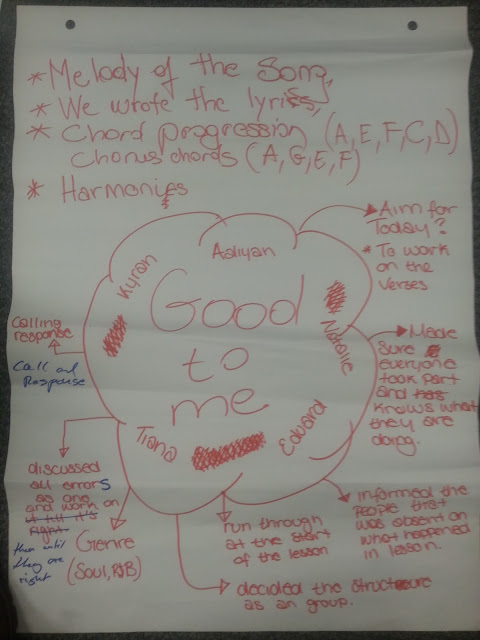 * Melody of the Song,
* We wrote the lyrics,
* Chord progression (A, E, F, C, D)
Chorus chords (A, G, E, F)
* Harmonies
Aim for
Today?
* To work
on the
verses
Aaliyah
Kyran
Natalie
Edward
Tiana
Good
to
me
Calling
response
Call and
Response
Made
Sure
everyone
took part
and has
knows what
they are
doing.
discussed
all errors
as one
and work on
it till it's
right
them until
they are
right
Genre
(Soul, R&B)
run through
at the start
of the lesson
informed the
People that
was absent on
what happened
in lesson.
decided the structure
as an group.